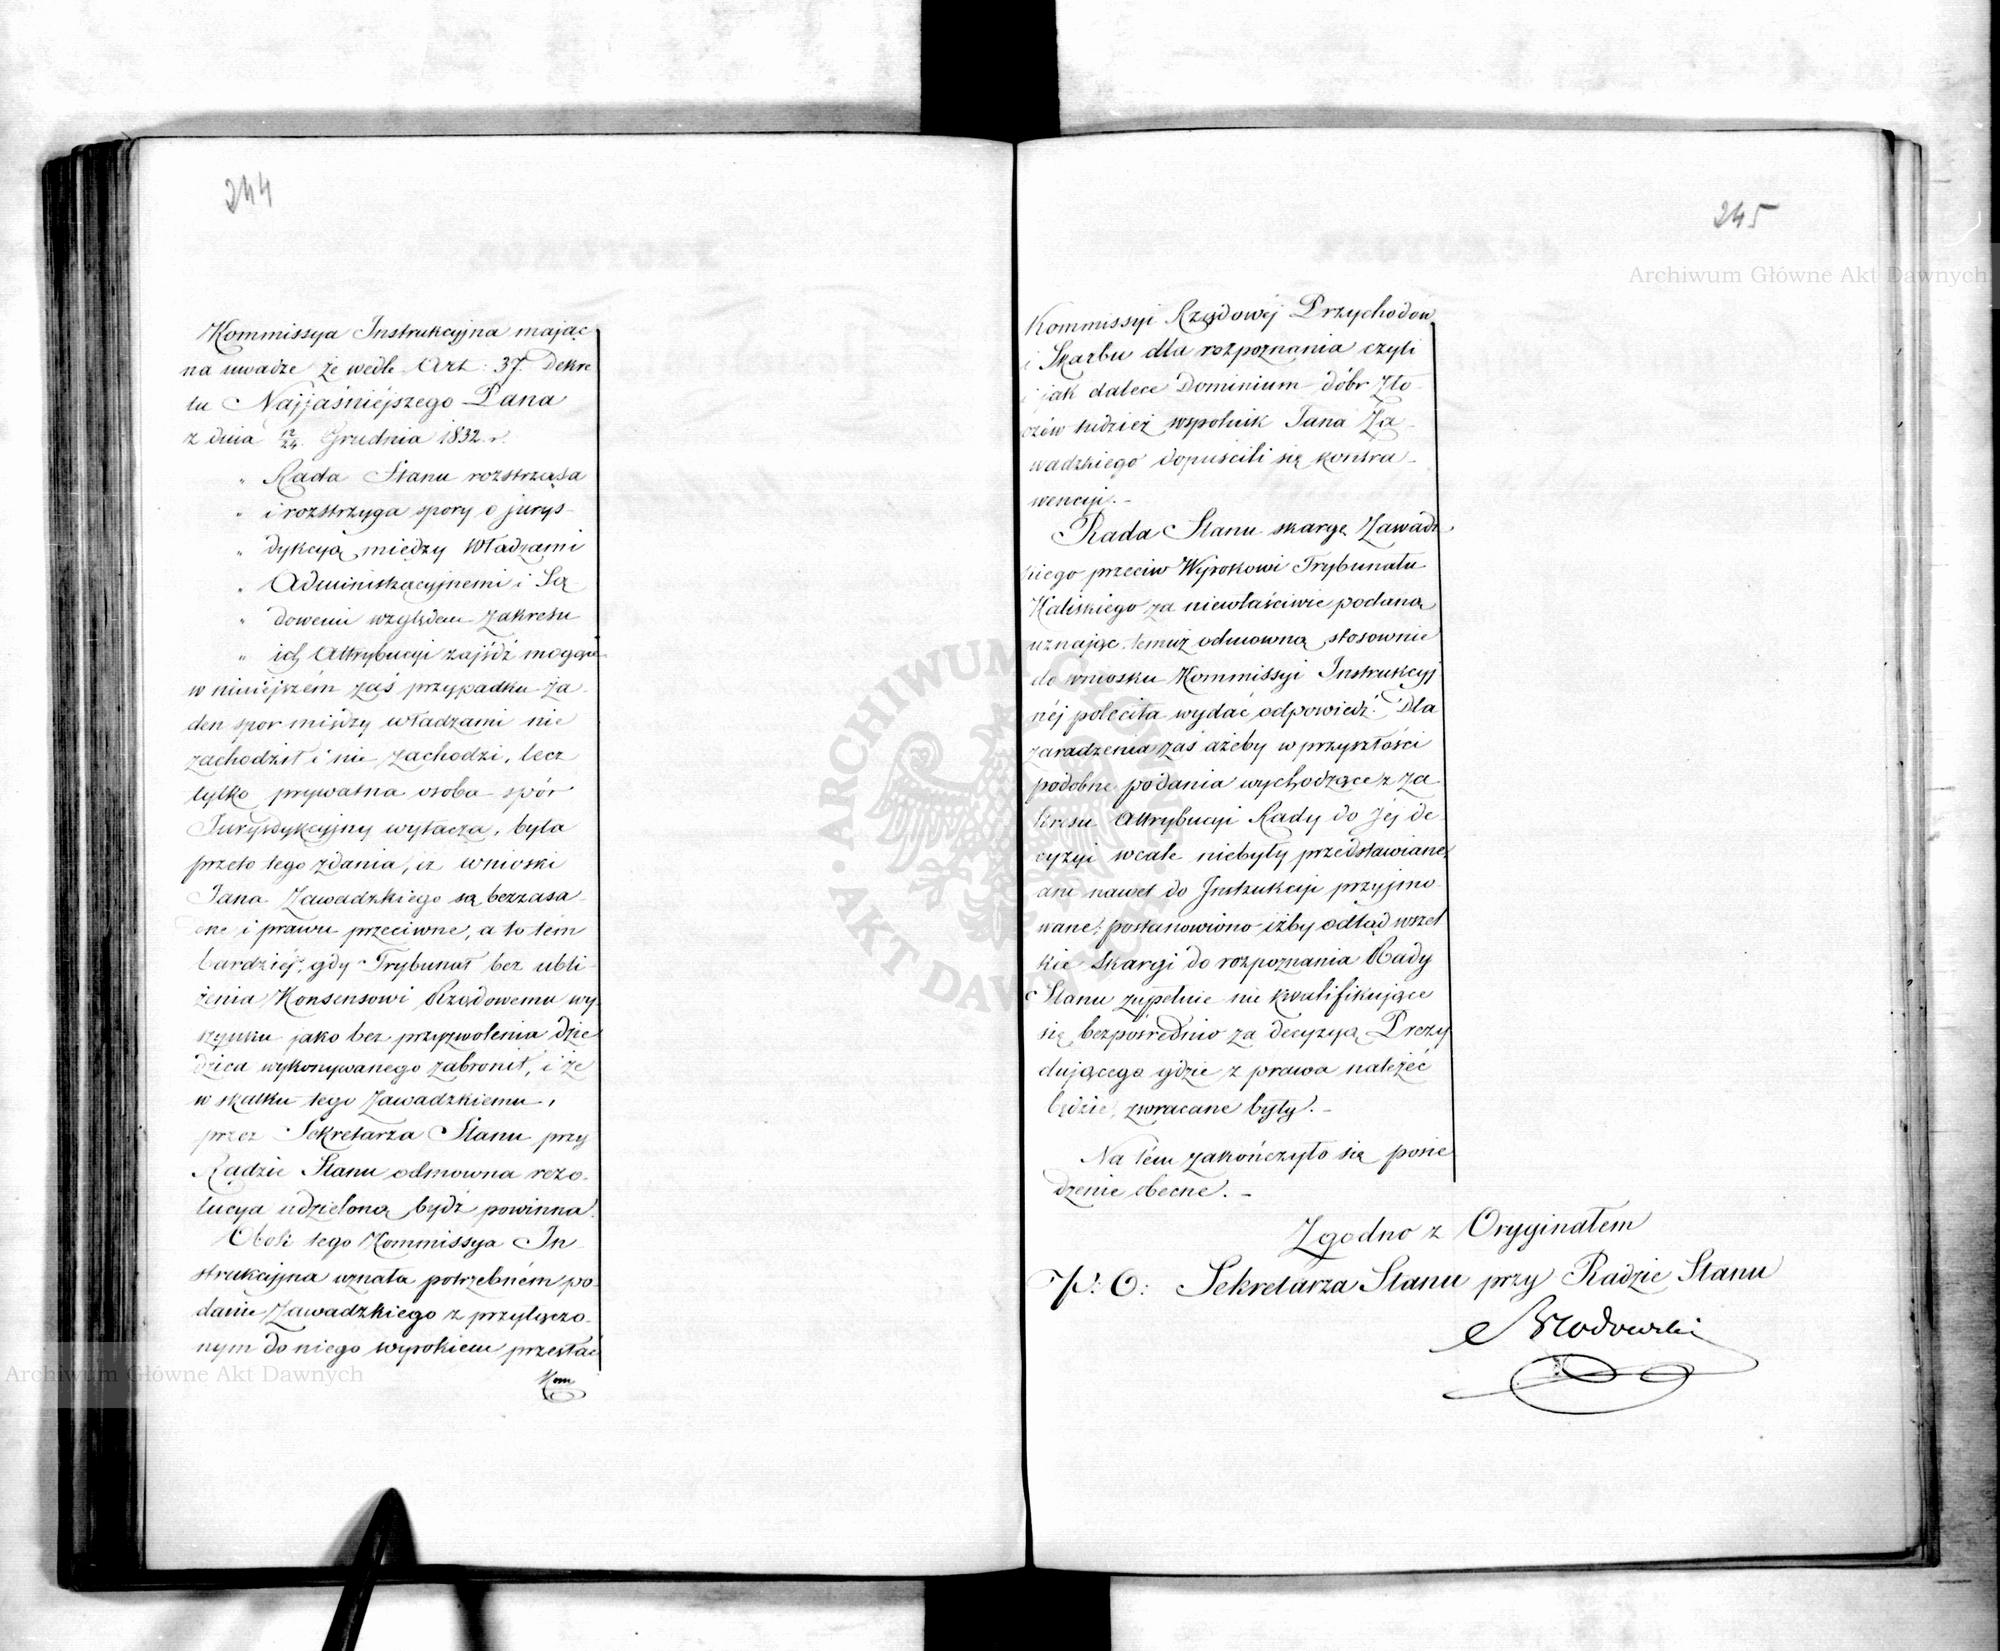 244
Kommissya Instrukcyjna mając
na uwadze że wedle Art: 37. Dekre
tu Najjaśniejszego Pana
z dnia 12/24. Grudnia 1832. r.
" Rada Stanu rozstrząsa
" i rozstrzyga spory o jurys-
" dykcyą między Władzami
" Administracyjnemi i Są-
" dowemi względem zakresu
" ich Attrybucyi zajść mogące
w niniejszém zaś przypadku ża-
den spor między władzami nie
zachodził i nie zachodzi, lecz
tylko prywatna osoba spór
Jurysdykcyjny wytacza, była
przeto tego zdania, iż wnioski
Jana Zawadzkiego są bezzasa-
dne i prawu przeciwne, a to tém
bardziéj, gdy Trybunał bez ubli-
żenia Konsensowi Rządowemu wy-
szynku jako bez przyzwolenia dzie
dzica wykonywanego zabronił, i że
w skutku tego Zawadzkiemu,
przez Sekretarza Stanu przy
Radzie Stanu odmowna rezo-
lucya udzieloną bydź powinna.
Obok tego Kommissya In-
strukcyjna uznała potrzebném po-
danie Zawadzkiego z przyłączo-
nym do niego wyrokiem przesłać
Kom
245
Kommissyi Rządowéj Przychodów
i Skarbu dla rozpoznania czyli
i jak dalece Dominium dóbr Zło-
czew tudzież wspolnik Jana Za-
wadzkiego dopuścili się kontra-
wencyi.-
Rada Stanu skargę Zawadz
kiego przeciw Wyrokowi Trybunału
Kaliskiego za niewłaściwie podaną
uznając, temuż odmowną stosownie
do wniosku Kommissyi Instrukcyj
néj poleciła wydać odpowiedź. Dla
zaradzenia zaś ażeby w przyszłości
podobne podania wychodzące z za-
kresu Attrybucyi Rady do Jéj de-
cyzyi wcale niebyły przedstawiane,
ani nawet do Instrukcyi przyjmo-
wane; postanowiono iżby odtąd wszel
kie skargi do rozpoznania Rady
Stanu zupełnie nie kwalifikujące
się bezpośrednio za decyzyą Prezy
dującego gdzie z prawa należéć
będzie, zwracane były.-
Na tém zakończyło się posie
dzenie obecne.-
Zgodno z Oryginałem
p: O: Sekretarza Stanu przy Radzie Stanu
Brodowski
Archiwum Główne Akt Dawnych
Archiwum Główne Akt Dawnych
ARCHIWUM GŁÓWNE AKT DAWNYCH